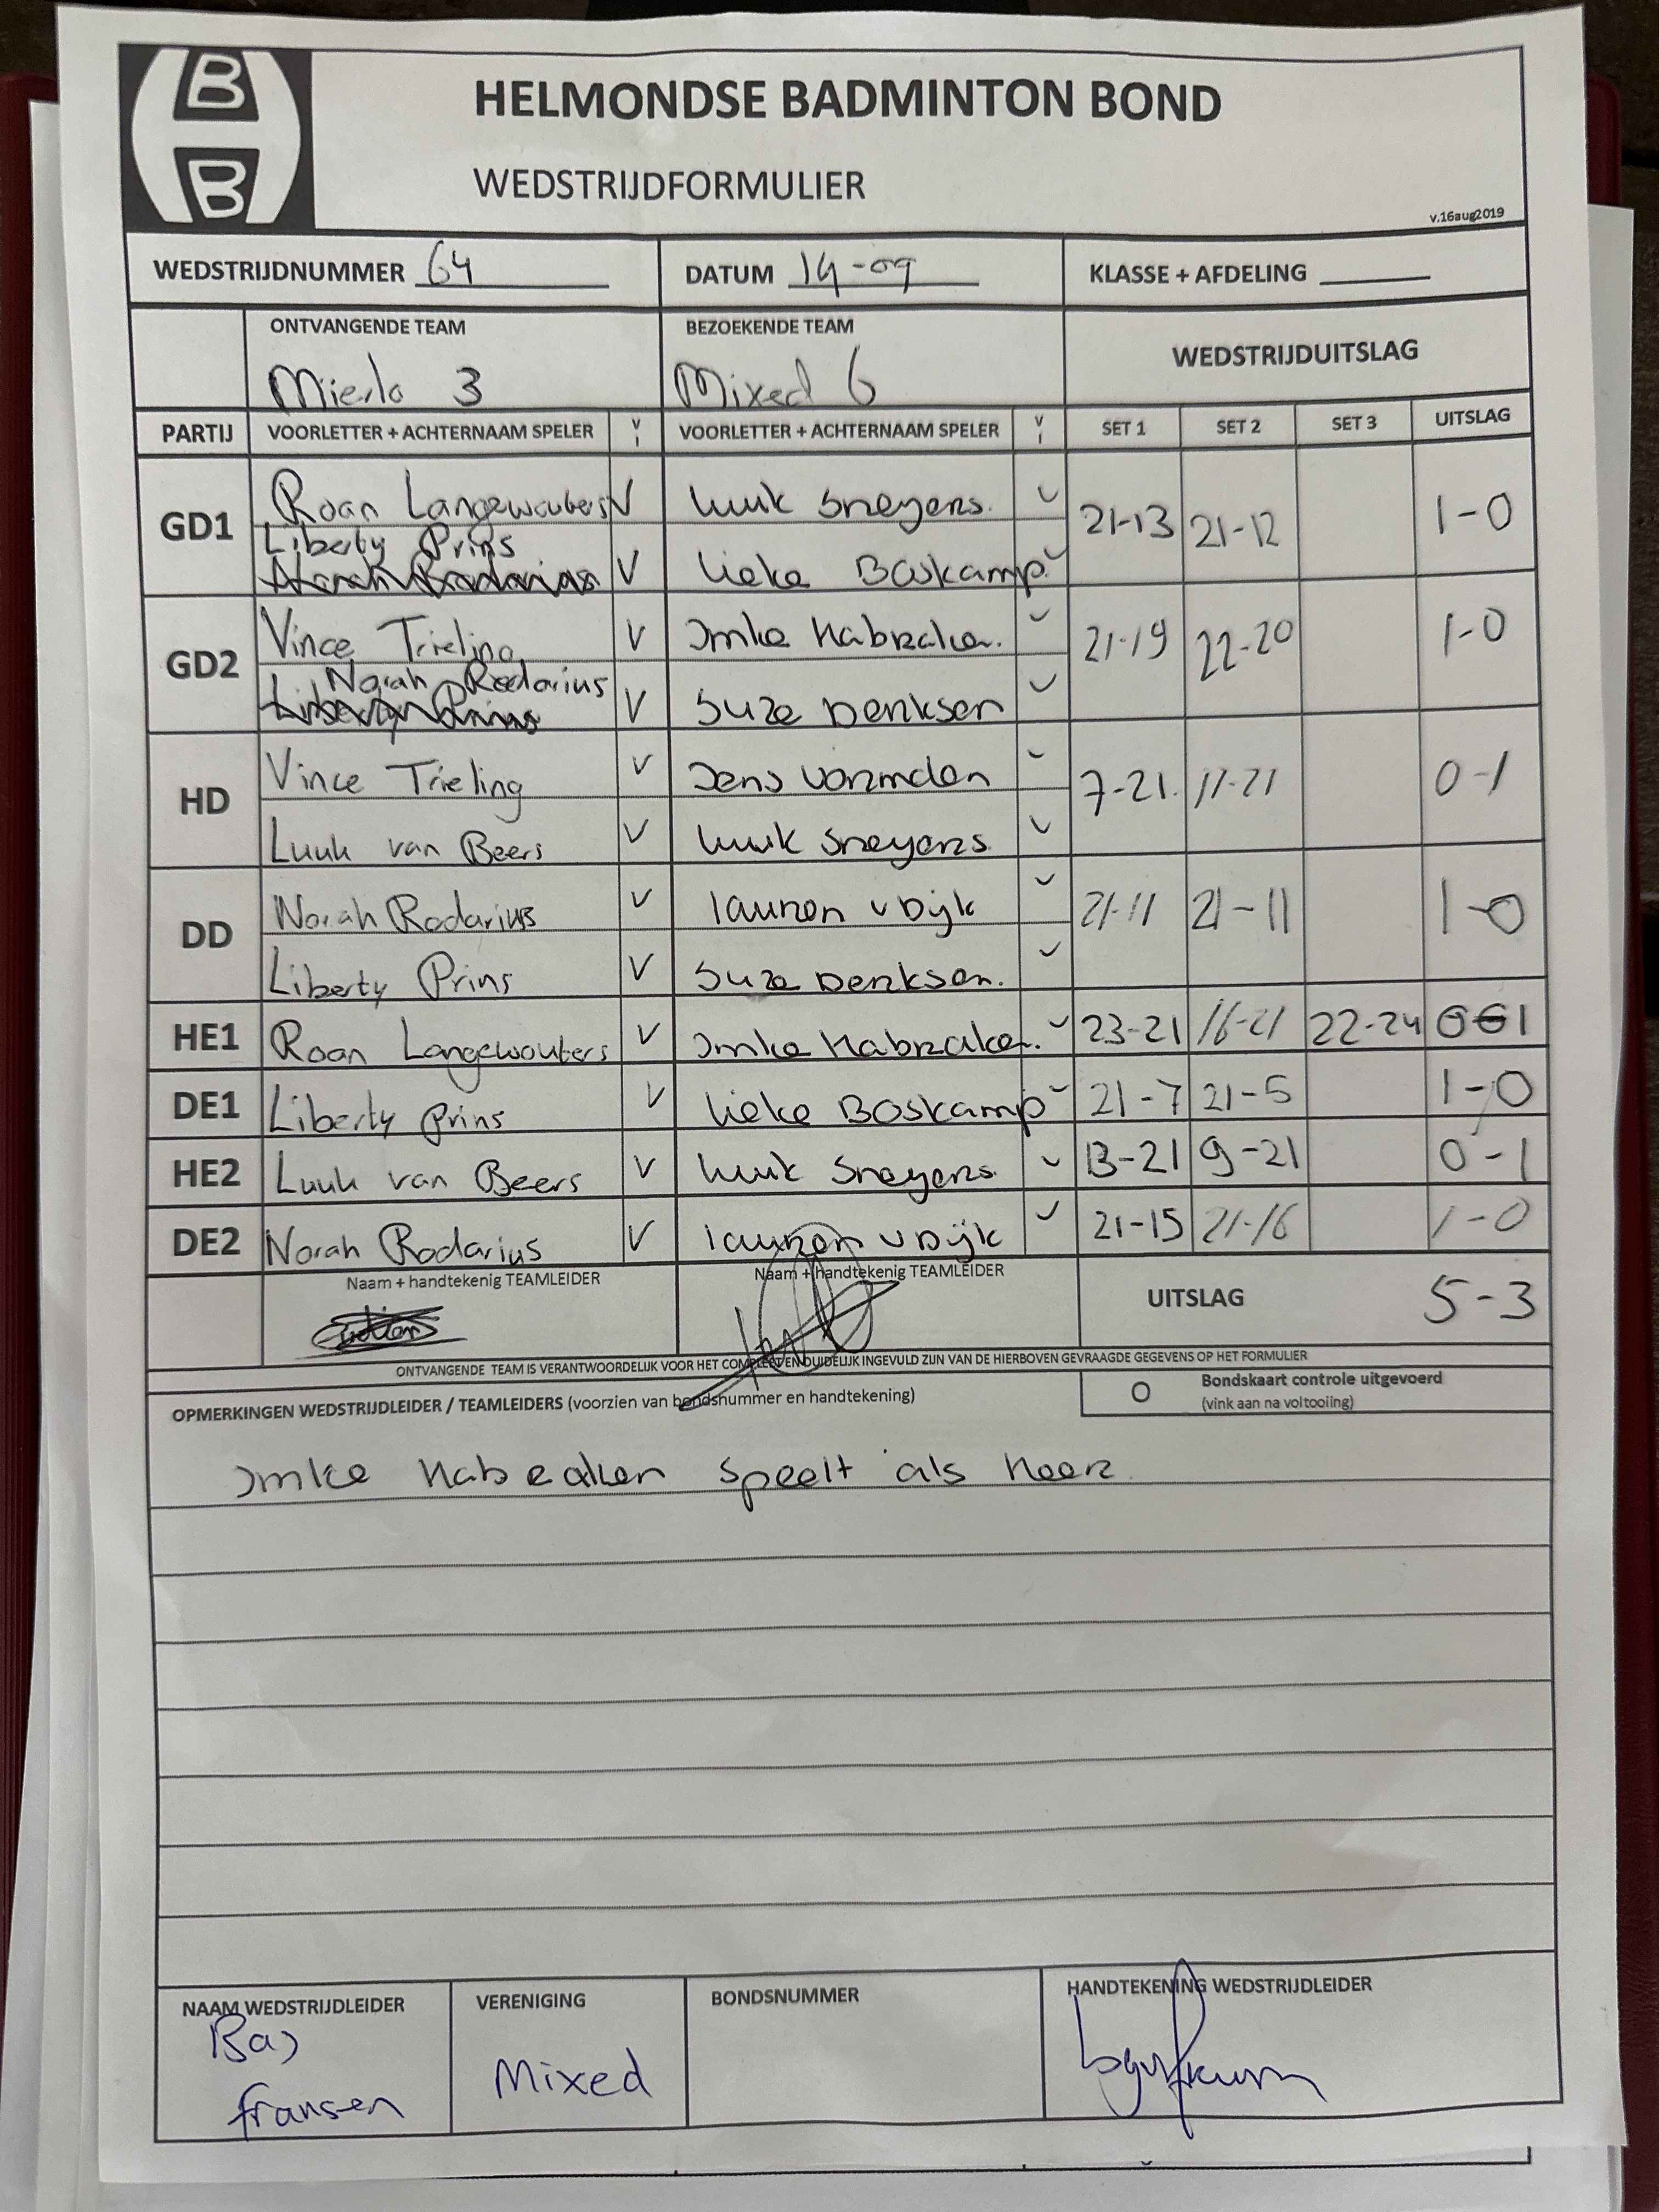 B
B
HELMONDSE BADMINTON BOND
WEDSTRIJDFORMULIER
v.16aug2019
WEDSTRIJDNUMMER 64 DATUM 14-09 KLASSE + AFDELING
ONTVANGENDE TEAM BEZOEKENDE TEAM WEDSTRIJDUITSLAG
Mierlo 3 Mixed 6
PARTIJ VOORLETTER + ACHTERNAAM SPELER V I VOORLETTER + ACHTERNAAM SPELER V I SET 1 SET 2 SET 3 UITSLAG
GD1 Roan Langewouters V Luuk Sneyers. 21-13 21-12 1-0
Liberty Prins
V Lieke Boskamp.
GD2 Vince Trieling V Imke Habraken. 21-19 22-20 1-0
Norah Rodarius
Liberty Prins V Suze Derksen
HD Vince Trieling V Jens 7-21. 11-21 0-1
Luuk van Beers V Luuk Sneyers
DD Norah Rodarius V Lauren v Dijk 21-11 21-11 1-0
Liberty Prins V Suze Derksen.
HE1 Roan Langewouters V Imke Habraken. 23-21 16-21 22-24 0-1
DE1 Liberty Prins V Lieke Boskamp 21-7 21-5 1-0
HE2 Luuk van Beers V Luuk Sneyers 13-21 9-21 0-1
DE2 Norah Rodarius V Lauren v Dijk 21-15 21-16 1-0
Naam + handtekenig TEAMLEIDER Naam + handtekenig TEAMLEIDER UITSLAG 5-3
ONTVANGENDE TEAM IS VERANTWOORDELIJK VOOR HET COMPLEET EN DUIDELIJK INGEVULD ZIJN VAN DE HIERBOVEN GEVRAAGDE GEGEVENS OP HET FORMULIER
OPMERKINGEN WEDSTRIJDLEIDER / TEAMLEIDERS (voorzien van bondsnummer en handtekening) O Bondskaart controle uitgevoerd
(vink aan na voltooiing)
Imke Habraken speelt als heer
NAAM WEDSTRIJDLEIDER VERENIGING BONDSNUMMER HANDTEKENING WEDSTRIJDLEIDER
Bas Mixed
fransen